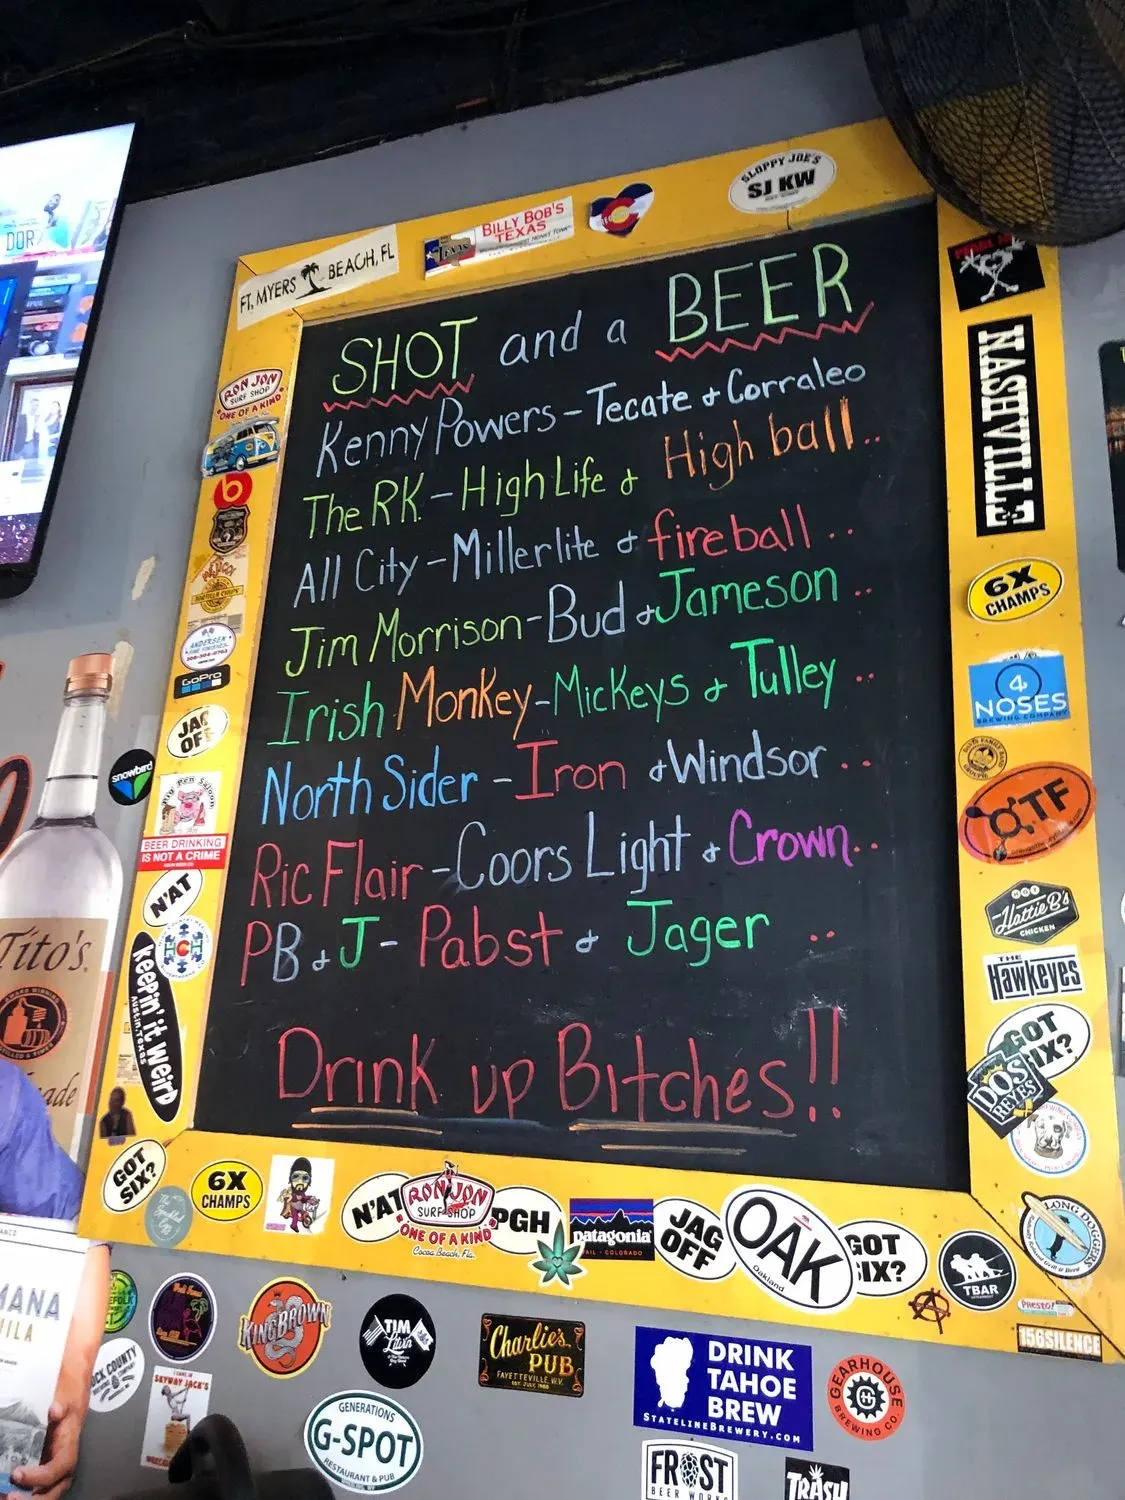 DOR
SLOPPY JOE'S
SJ KW
BILLY BOB'S
TEXAS
TEXAS
FT. MYERS BEACH, FL
SHOT and a BEER
Kenny Powers - Tecate & Corraleo
The RK - High Life & High ball..
All City - Millerlite & fireball ..
Jim Morrison - Bud & Jameson ..
Irish Monkey - Mickeys & Tulley ..
North Sider - Iron & Windsor ..
Ric Flair - Coors Light & Crown..
PB & J - Pabst & Jager ..
Drink up Bitches!!
RON JON
SURF SHOP
"ONE OF A KIND"
b
ANDERSEN
GoPro
JAG
OFF
snowbird
BEER DRINKING
IS NOT A CRIME
N'AT
Keepin' it Weird
AUSTIN, TEXAS
Tito's
GOT
SIX?
NASHVILLE
6X
CHAMPS
4
NOSES
BREWING COMPANY
OTF
HOT
Hattie B's
CHICKEN
THE
HAWKEYES
GOT
SIX?
DOS
REYES
LONG DOGGERS
6X
CHAMPS
N'AT
RON JON
SURF SHOP
"ONE OF A KIND"
Cocoa Beach, Fla.
PGH
patagonia
VAIL - COLORADO
JAG
OFF
OAK
Oakland
GOT
SIX?
TBAR
PRESTO!
156SILENCE
MANA
KING BROWN
TIM
Charlie's
PUB
FAYETTEVILLE, W.V.
DRINK
TAHOE
BREW
STATELINEBREWERY.COM
GEARHOUSE
BREWING CO.
CK COUNTY
I CAME IN
SKYWAY JACK'S
GENERATIONS
G-SPOT
RESTAURANT & PUB
FROST
BEER WORKS
TRASH